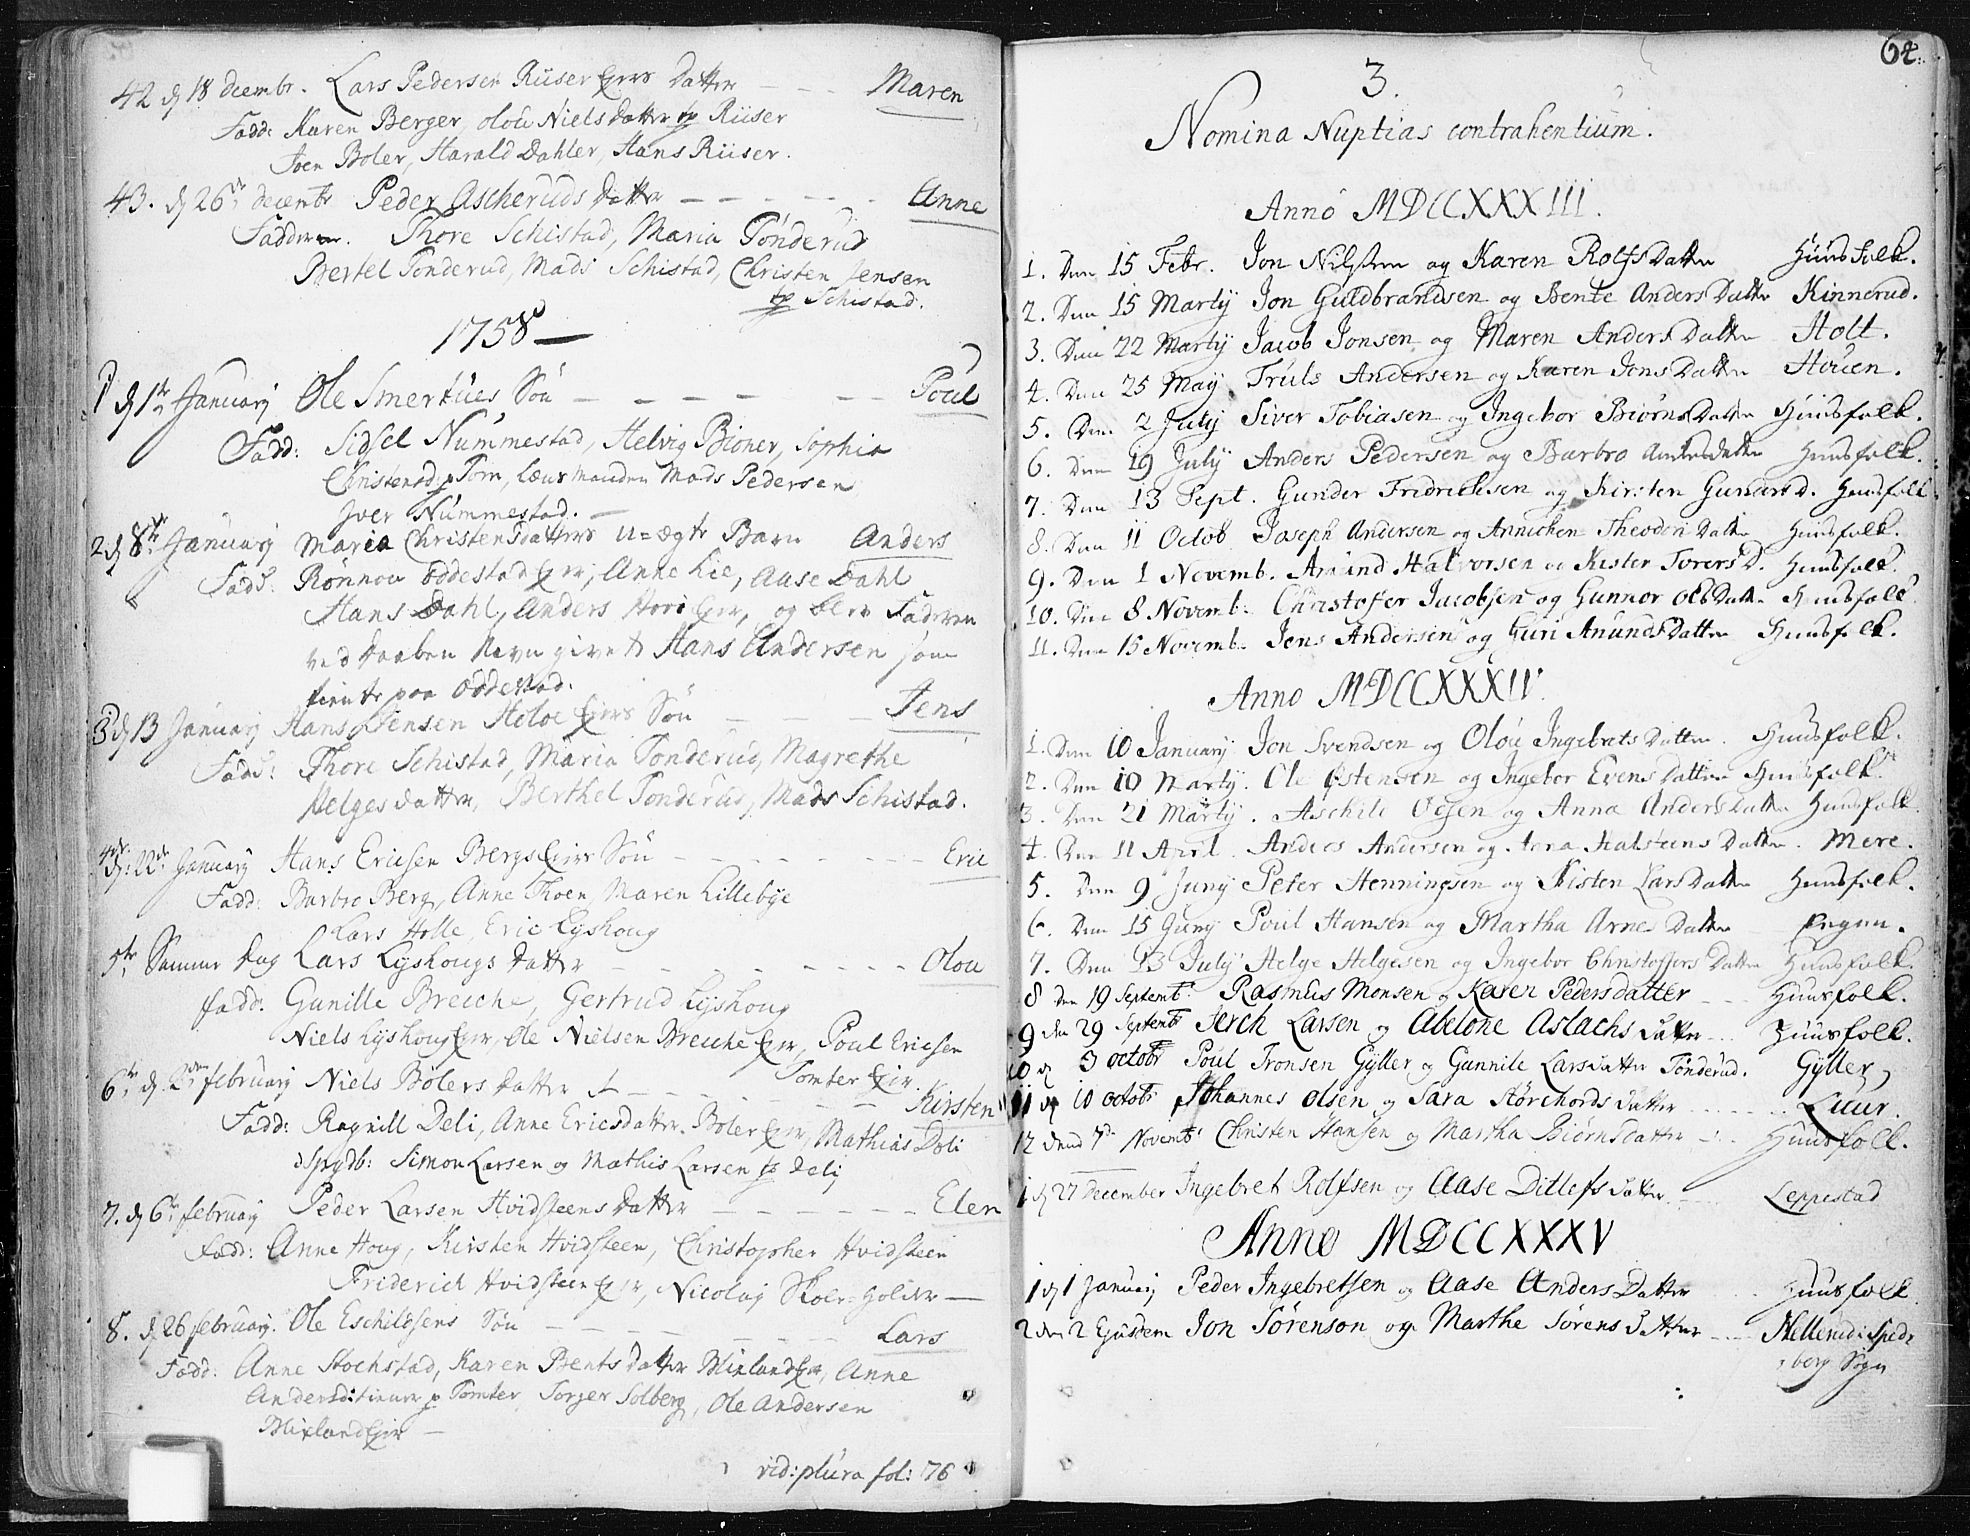 42 d 18 decembr. Lars Pedersen Riiser Ejers Datter - - - Maren
Fadd: Karen Berger, Olou Niels Datter Riiser
Iven Boler, Harald Dahler, Hans Riiser.
43. d 26 decembr Peder Ascheruds Datter - - - - - Anne
Faddere. Thore Schistad, Maria Tonderud
Bertel Tonderud, Mads Schistad, Christen Jensen
Schistad.
1758
1 d 1 January Ole Smertues Sön - - - - - Poul
Fadd: Sidsel Nummestad, Helvig Bioner, Sophia
Christensd p Tom, Lensmanden Mads Pedersen
Iver Nummestad.
2 d 8 January Maria Christensdatters u=ægte Barn Anders
Fadd: Rönnou Oddestad Ejer, Anne Lie, Aase Dahl
Hans Dahl, Anders Ejer, og blev Faderen
ved Daaben Navn givet Hans Andersen som
tiente paa Oddestad.
3 d 13 January Hans Jensen Ejers Sön - - - Jens
Fadd: Thore Schistad, Maria Tonderud, Magrethe
Helgesdatter, Berthel Tonderud, Mads Schistad.
4 d: 22 January Hans Ericsen Bergs Ejers Sön - - - - - - Eric
Fadd: Barbro Berg, Anne Thoen, Maren Lillebye
Lars Holle, Eric Lyshoug
5 Samme Dag Lars Lyshougs Datter - - - - - - Olou
Fadd: Gunille Breche, Gertrud Lyshoug
Niels Lyshoug Ejer, Ole Nielsen Breche Ejer, Poul Ericsen
Tomter Ejer.
6 d. 2 february Niels Bölers Datter - - - - - - Kirsten
Fadd: Ragnill Deli, Anne Ericsdatter Boler Ejer, Mathias Deli
Simon Larsen og Mathis Larsen Deli
7. d 6 february Peder Larsen Hvidsteens Datter - - - - - - Elen
Fadd: Anne Houg, Kirsten Hvidsteen, Christopher Hvidsteen
Friderich Hvidsteen Ejer, Nicolay Skole=Holder
8. d 26 february. Ole Eschildsens Sön - - - - - - Lars
Fadd: Anne Stochstad, Karen Bents Datter Ejer, Anne
Andersd: tienner p Tomter, Torger Solberg, Ole Andersen
Ejer
vid: plura fol: 76
64.
3.
Nomina Nuptias contrahentium.
Anno MDCCXXXIII.
1. Den 15 Febr. Jon Nilsen og Karen Rolfs Datter Huusfolk.
2. Den 15 Marty Jon Guldbrandsen og Bente Anders Datter Kinnerud.
3. Den 22 Marty Jacob Jonsen og Maren Anders Datter Holt.
4. Den 25 May Truls Andersen og Karen Jons Datter Houen.
5. Den 2 July Siver Tobiasen og Ingebor Biörns Datter Huusfolk.
6. Den 19 July Anders Pedersen og Barbro Andersdatter Huusfolk.
7. Den 13 Sept. Gunder Fridrichsen og Kirsten Gunders D. Huusfolk
8. Den 11 Octob Joseph Andersen og Annichen Theodori Datter Huusfolk.
9. Den 1 Novemb. Amund Halvorsen og Kisten Torers D. Huusfolk.
10. Den 8 Novemb. Christofer Jacobsen og Gunnor Ols Datter Huusfolk
11. Den 15 Novemb. Jens Andersen og Guri Anunds Datter Huusfolk.
Anno MDCCXXXIV.
1. Den 10 January Jon Svendsen og Olou Ingebrets Datter. Huusfolk.
2. Den 10 Marty. Ole Östensen og Ingebor Evens Datter Huusfolk.
3. Den 21 Marty. Aschild Olsen og Anna Anders Datter Huusfolk.
4. Den 11 April. Anders Andersen og Anna Halsteens Datter. Mere.
5. Den 9 Juny Peter Henningsen og Kisten Lars Datter Huusfolk.
6. Den 15 Juny Poul Hansen og Martha Arnes Datter
7. Den 13 July Helge Helgesen og Ingebor Christoffers Datter Huusfolk.
8 den 19 Septemb. Rasmus Monsen og Karen Peders datter - - Huusfolk.
9 den 29 Septemb Jerch Larsen og Abelone Aslachs Datter - - Huusfolk.
10 d 3 octobr Poul Tronsen Gyller og Gunnile Larsdatter Tonderud. Gyller
11 d 10 octobr Johannes Olsen og Sara Datter - - - - - Luur.
12 dend 7 Novemb Christen Hansen og Martha Biörnsdatter - - Huusfolk.
1 d 27 December Ingebret Rolfsen og Aase Ditlefs Datter - - Leppestad
Anno MDCCXXXV
1 d 1 January Peder Ingebretsen og Aase Anders Datter - - Huusfolk
2 den 2 Ejusdem Jon Sörenson og Marthe Sörens Datter - - Hellerud i Sped=
berg Sogn